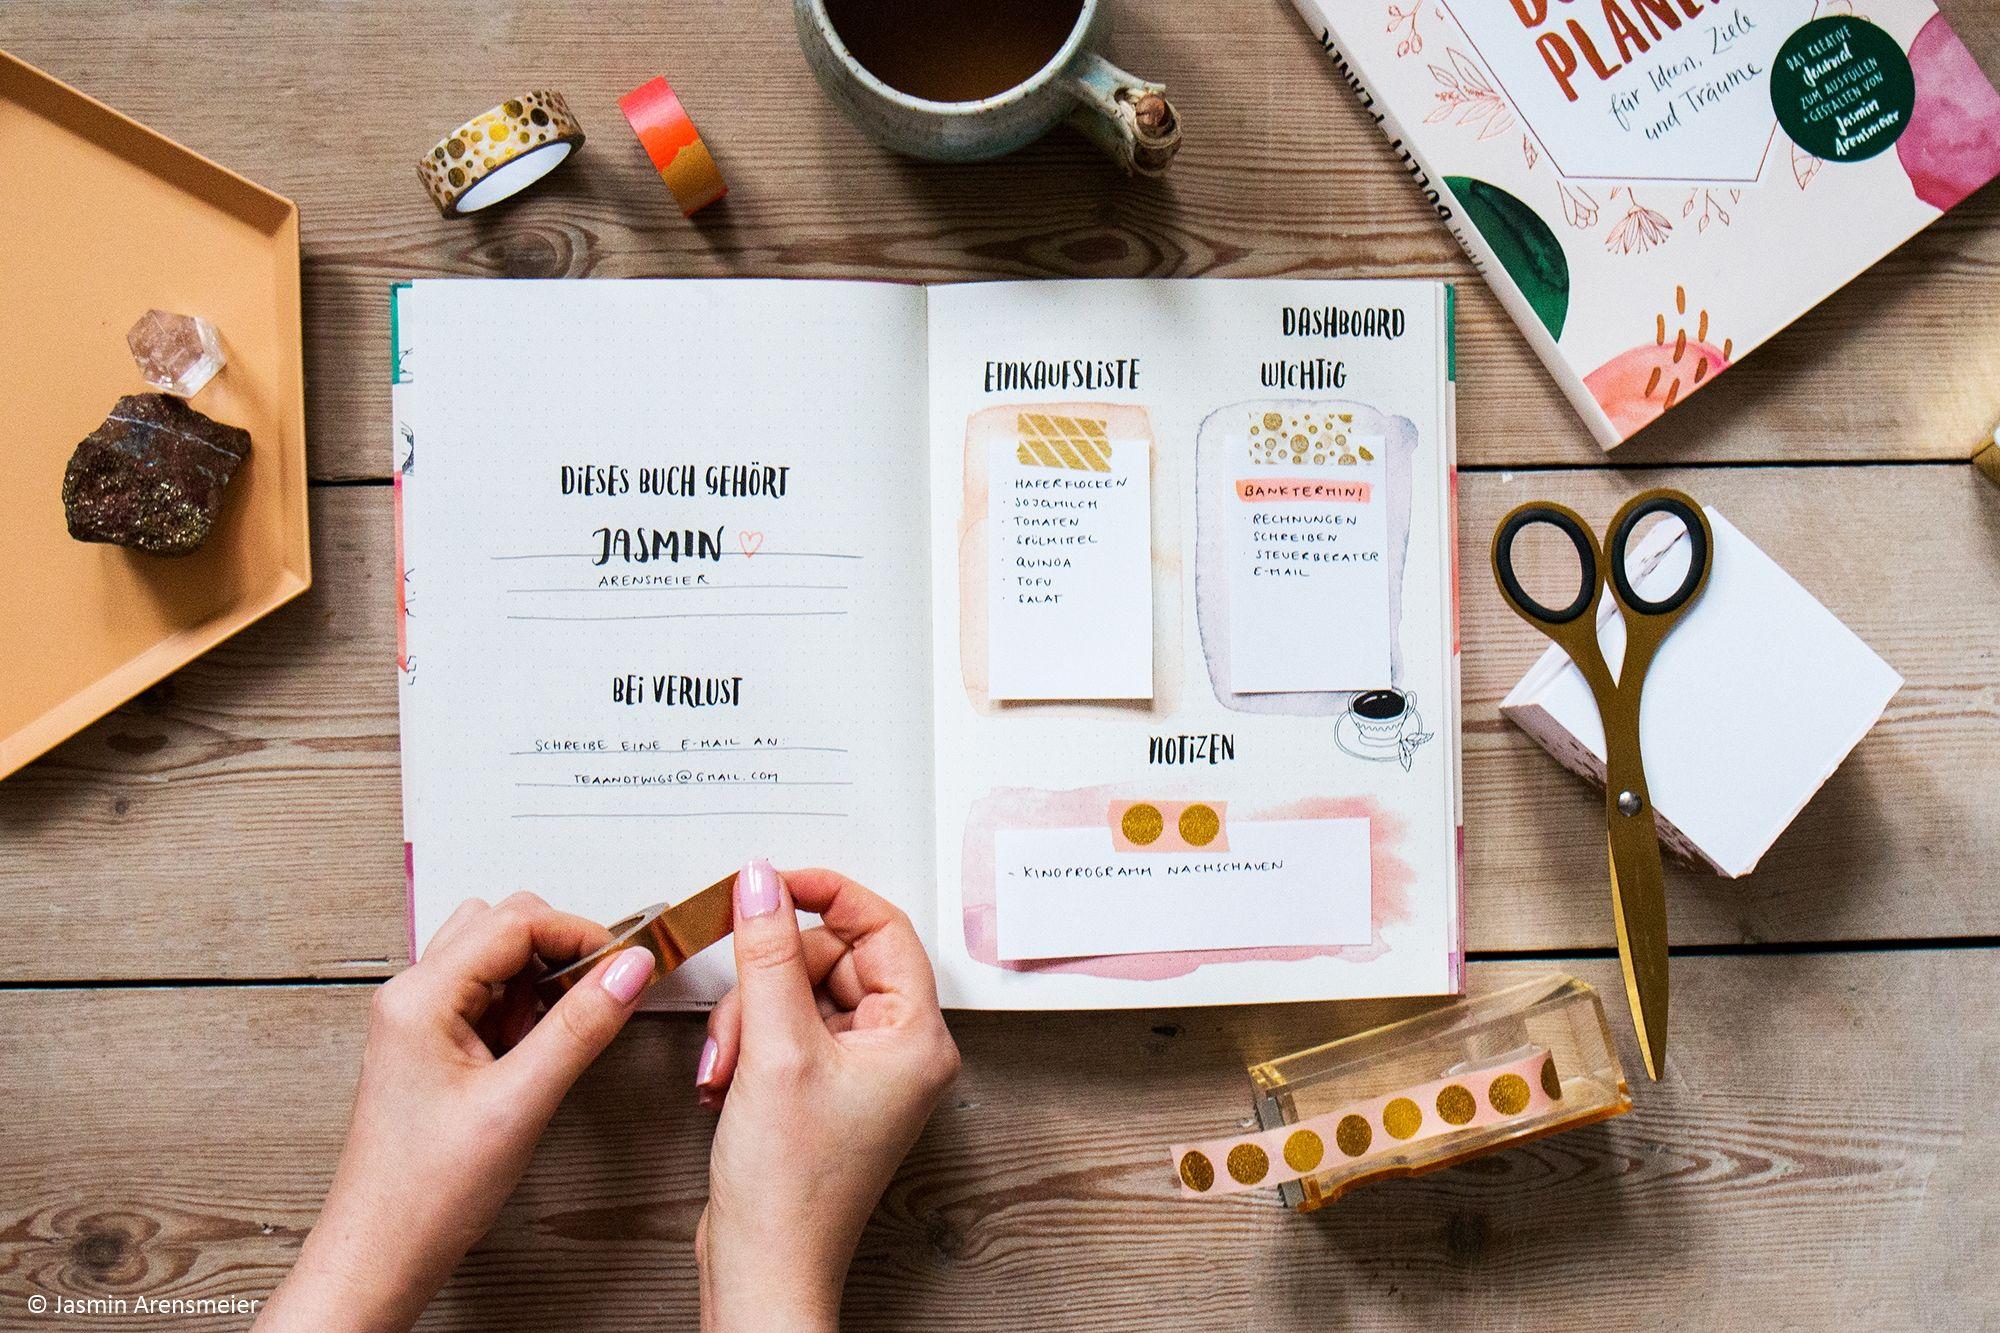 PLANER
für Ideen, Ziele
und Träume
DAS KREATIVE
Journal
ZUM AUSFÜLLEN
+ GESTALTEN VON
Jasmin
Arensmeier
BULLET PLANER
DIESES BUCH GEHÖRT
JASMIN
ARENSMEIER
BEI VERLUST
SCHREIBE EINE E-MAIL AN:
TEAANDTWIGS@GMAIL.COM
DASHBOARD
EINKAUFSLISTE
· HAFERFLOCKEN
· SOJAMILCH
· TOMATEN
· SPÜLMITTEL
· QUINOA
· TOFU
· SALAT
WICHTIG
BANKTERMIN!
· RECHNUNGEN
SCHREIBEN
· STEUERBERATER
E-MAIL
NOTIZEN
- KINOPROGRAMM NACHSCHAUEN
© Jasmin Arensmeier